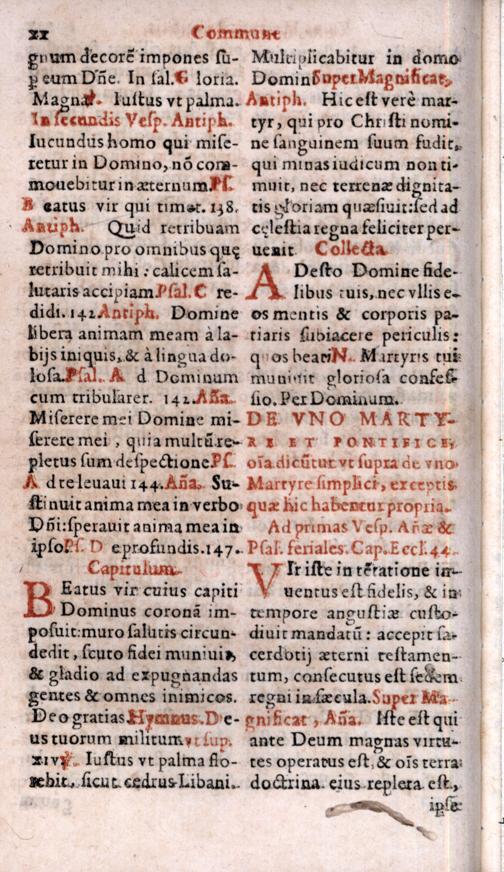 xx Commune
gnum decorē impones su-
ꝑ eum Dñe. In sal. G loria.
Magnať. Iustus vt palma.
In secundis Vesp. Antiph.
Iucundus homo qui mise-
retur in Domino, nō com-
mouebitur in æternum. Ps.
B eatus vir qui timet. 138.
Antiph. Quid retribuam
Domino pro omnibus quę
retribuit mihi : calicem sa-
lutaris accipiam. Psal. C re-
didi. 142 Antiph. Domine
libera animam meam à la-
bijs iniquis, & à lingua do-
losa. Psal. A d Dominum
cum tribularer. 142. Aña.
Miserere mei Domine mi-
serere mei, quia multū re-
pletus sum despectione. Ps.
A d te leuaui 144. Aña. Su-
stinuit anima mea in verbo
Dñi: sperauit anima mea in
ipso. Ps. D e profundis. 147.
Capitulum.
BEatus vir cuius capiti
Dominus coronā im-
posuit: muro salutis circun-
dedit, scuto fidei muniuit,
& gladio ad expugnandas
gentes & omnes inimicos.
Deo gratias. Hymnus. De-
us tuorum militum, vt sup.
xiv. ℣. Iustus vt palma flo-
rebit, sicut cedrus Libani.
Multiplicabitur in domo
Domini Super Magnificat,
Antiph. Hic est verè mar-
tyr, qui pro Christi nomi-
ne sanguinem suum fudit,
qui minas iudicum non ti-
muit, nec terrenæ dignita-
tis gloriam quæsiuit: sed ad
cęlestia regna feliciter per-
uenit. Collecta.
ADesto Domine fide-
libus tuis, nec vllis e-
os mentis & corporis pa-
tiaris subiacere periculis:
quos beati N. Martyris tui
muniuit gloriosa confes-
sio. Per Dominum.
DE VNO MARTY-
RE ET PONTIFICE,
oīa dicūtur vt supra de vno
Martyre simplici, exceptis
quæ hic habentur propria.
Ad primas Vesp. Añæ &
Psal. feriales. Cap. Eccl. 44.
VIr iste in tētatione in-
uentus est fidelis, & in
tempore angustiæ custo-
diuit mandatū: accepit sa-
cerdotij æterni testamen-
tum, consecutus est sedem
regni in sæcula. Super Ma-
gnificat, Aña. Iste est qui
ante Deum magnas virtu-
tes operatus est, & oīs terra
doctrina eius repleta est,
ipse